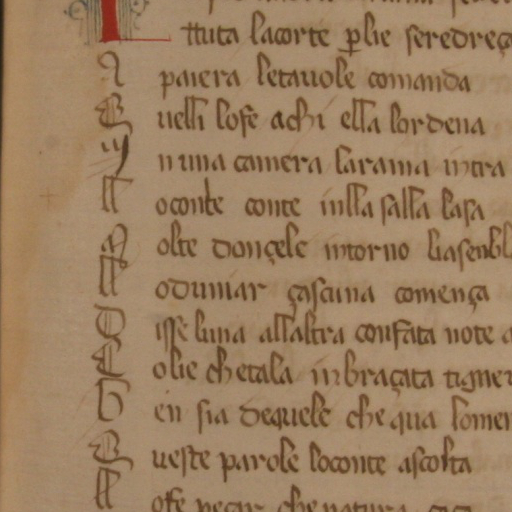 Tuta lacorte plie seredreça
A paiera letavole comanda
Quelli lofe achi ella lordena
In una camera laraina intra
Lloconte conte inlla salla lasa
Molte donçele intorno liasenbl
Llodumar çascuna comença
Disse luna allaltra confata note
Colie chetala inbraçata tigner
Ben sia dequele che qua lomen
Queste parole loconte ascolta